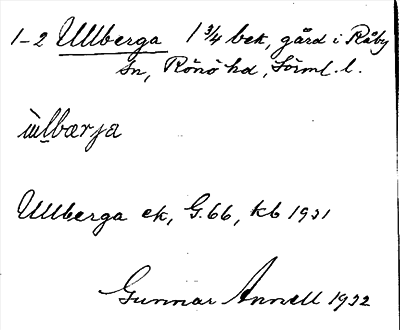 1-2 Ullberga 1 3/4 bek, gård i Råby
sn, Rönö hd, Sörml. l.
ùlbærja
Ullberga ek, G.66, kb 1931
Gunnar Annell 1932